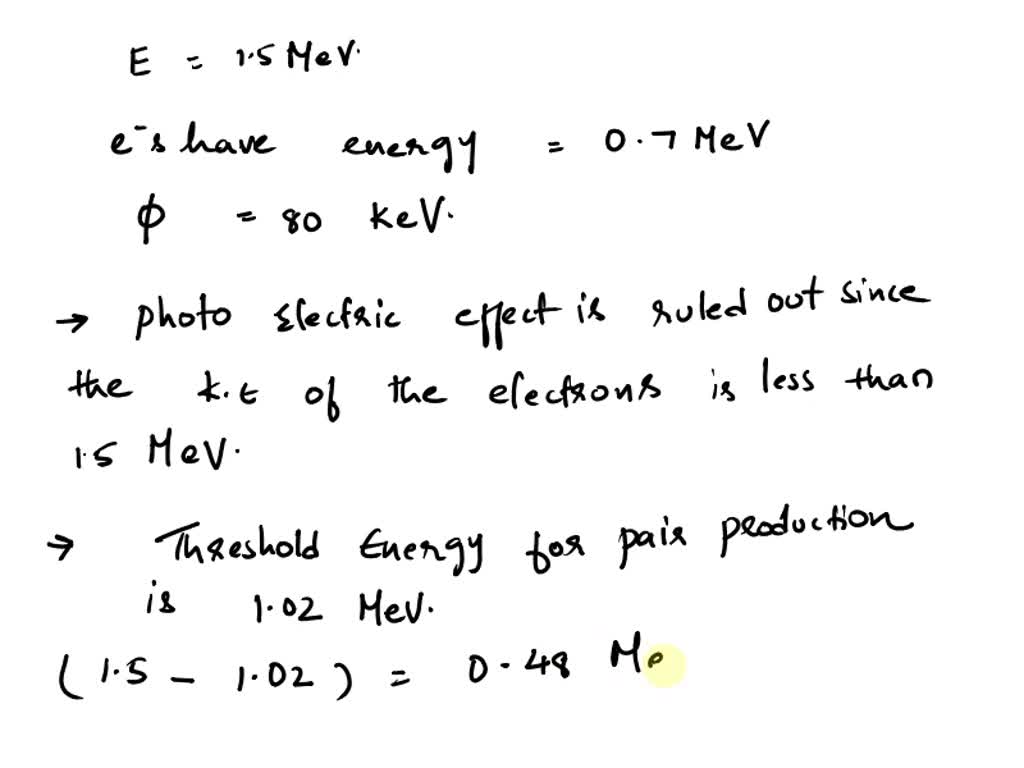 E = 1.5 MeV.
e⁻s have energy = 0.7 MeV
ϕ = 80 keV.
→ photo electric effect is ruled out since
the k.E of the electrons is less than
1.5 MeV.
→ Threshold Energy for pair production
is 1.02 MeV.
(1.5 - 1.02) = 0.48 Me